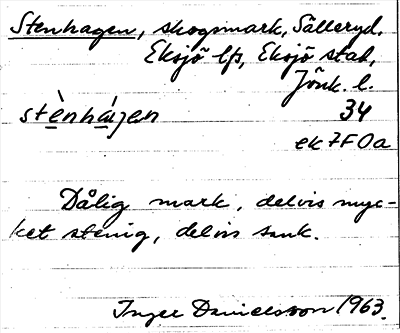 Stenhagen, skogsmark, Sälleryd,
Eksjö lfs, Eksjö stad,
Jönk. l.
stènhá̱gen 34
ek 7F0a
Dålig mark, delvis myc-
ket stenig, delvis sank.
Inger Danielsson 1963.